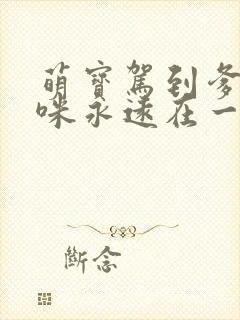 萌寶駕到爹
咪永遠在一
斷念